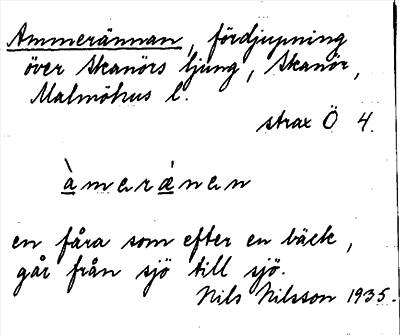 Ammerännan, fördjupning
över Skanörs ljung, Skanör,
Malmöhus l.
strax Ö 4.
àmerǽnen
en fåra som efter en bäck,
går från sjö till sjö.
Nils Nilsson 1935.